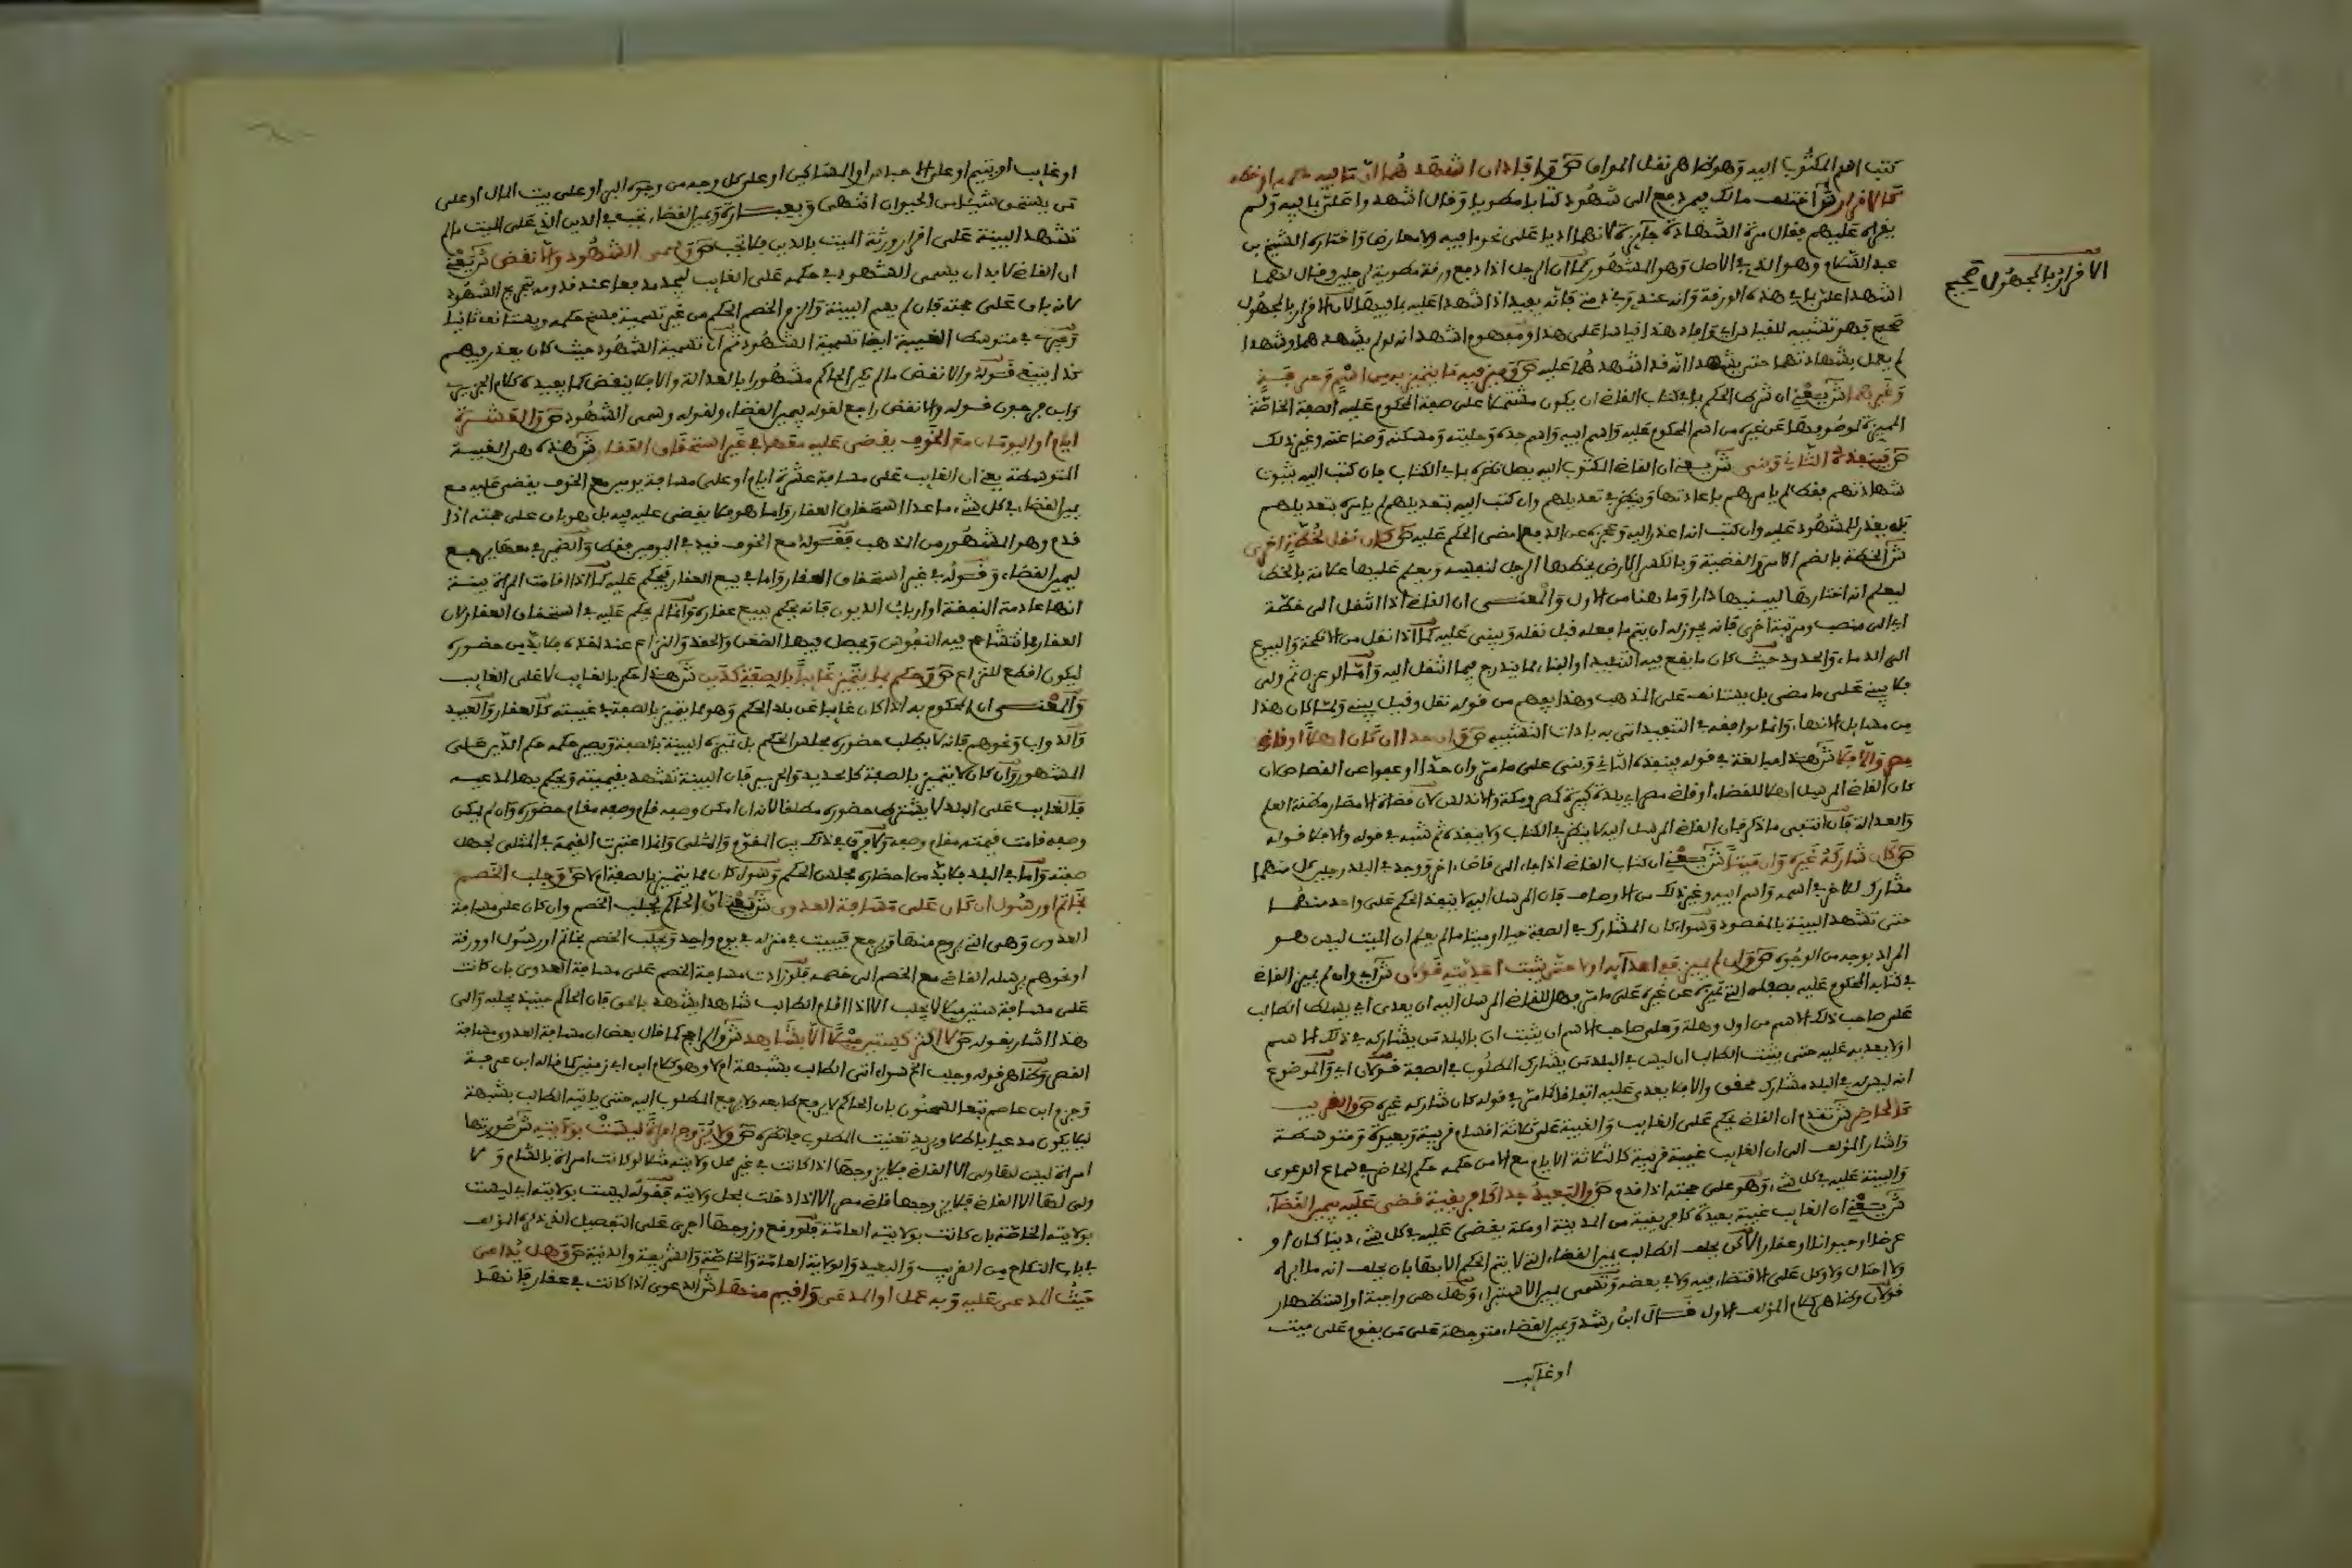 كتب اسم المكتوب اليه وهو ظاهر نقل المواق ص وافادا ان اشهدهما ان ما فيه حكمه او خطه
كالاقرار ش اختلف مالك فيمن دفع الى شهود كتابا مطويا وقال اشهدوا على بما فيه ولم
عبد السلام وهو الذي في الاصل وهو المشهور كما ان الرجل اذا دفع ورقة مطوية لرجلين وقال لهما
اشهدا علي بما في هذه الورقة وانه عندي وفي ذمتي فانه يفيد اذا شهدا عليه بما فيها لان الاقرار بالمجهول
صحيح
الاقرار بالمجهول صحيح
لم يعمل بشهادتهما حتى يشهدا انه قد اشهدهما عليه ص وميز فيه ما يتميز به من اسم وحرفة
وغيرهما ش يعني ان شرط الحكم بما في كتاب القاضي ان يكون مشتملا على صفة المحكوم عليه الصفة الخاصة
المميزة لموصوفها عن غيره من اسم المحكوم عليه واسم ابيه واسم جده وحليته ومسكنه وصناعته وغير ذلك
ص فينفذه الثاني وبنى ش يعني ان القاضي المكتوب اليه يصل نظره بما في الكتاب فان كتب اليه بثبوت
شهادتهم فقط لم يامرهم باعادتها وينظر في تعديلهم وان كتب اليه بتعديلهم لم يامره بتعديلهم
بل يعذر للمشهود عليه وان كتب انه اعذر اليه وعجزه عن الدفع امضى الحكم عليه ص كان نقل لخطة اخرى
ش الخطة بالضم الامر والقضية وبالكسر الارض يختطها الرجل لنفسه ويعلم عليها علامة بالخط
ليعلم انه اختارها ليبنيها دارا وما هنا من الاول والمعنى ان القاضي اذا انتقل الى خطة
اي الى منصب ومرتبة اخرى فانه يجوز له ان يتم ما فعله قبل نقله ويبني عليه كما اذا نقل من الانكحة والبيوع
الى الدماء والحدود حيث كان ما يقع فيه التنفيذ او البناء مما يندرج فيما انتقل اليه واما لو عزل ثم ولي
فلا يبني على ما مضى بل يستانف على المذهب وهذا يفهم من قوله نقل وقيل يبني ولما كان هذا
مصر والا فلا ش هذا مبالغة في قوله فينفذه الثاني وبنى على ما مر وان حدا او عفوا عن القصاص ان
كان القاضي المرسل اهلا للقضاء او قاضي مصر اي بلدة كبيرة كمصر ومكة والاندلس لان قضاة الامصار مظنة العلم
والعدالة فان انتفى ما ذكر فان القاضي المرسل اليه لا ينظر في الكتاب ولا ينفذه ثم شبه في قوله والا فلا قوله
ص كان شاركه غيره وان ميتا ش يعني ان كتاب القاضي اذا جاء الى قاض اخر ووجد في البلد رجلين كل منهما
مشارك للاخر في اسمه واسم ابيه وغير ذلك من الاوصاف فان المرسل اليه لا ينفذ الحكم على واحد منهما
حتى تشهد البينة بالمقصود وسواء كان المشارك في الصفة حيا او ميتا ما لم يعلم ان الميت ليس هو
المراد بوجه من الوجوه ص وان لم يميز ففي اعدائه او لا حتى يثبت احديته قولان ش اي وان لم يميز القاضي
في كتابه المحكوم عليه بصفاته التي تميزه عن غيره على ما مر فهل للقاضي المرسل اليه ان يعدي اي يسلط الطالب
على صاحب ذلك الاسم من اول وهلة وعلى صاحب الاسم ان يثبت ان بالبلد من يشاركه في ذلك الاسم
اولا يعديه عليه حتى يثبت الطالب ان ليس في البلد من يشارك المطلوب في الصفة قولان اي والموضوع
انه ليس في البلد مشارك محقق والا فلا يعدى عليه اتفاقا كما مر في قوله كان شاركه غيره ص والقريب
كالحاضر ش تقدم ان القاضي يحكم على الغائب والغيبة على ثلاثة اقسام قريبة وبعيدة ومتوسطة
واشار المؤلف الى ان الغائب غيبة قريبة كالثلاثة الايام مع الامن حكمه حكم الحاضر في سماع الدعوى
والبينة عليه في كل شيء وهو على حجته اذا قدم ص والبعيد جدا كافريقية قضى عليه بيمين القضاء
ش يعني ان الغائب غيبة بعيدة كافريقية من المدينة او مكة يقضى عليه في كل شيء دينا كان او
عرضا او حيوانا او عقارا لاكن يحلف الطالب يمين القضاء التي لا يتم الحكم الا بها بان يحلف انه ما ابراه
ولا احتال ولا وكل على الاقتضاء فيه ولا في بعضه وتسمى يمين الاستبراء وهل هي واجبة او استظهار
قولان وظاهر كلام المؤلف الاول قال ابن رشد ويمين القضاء متوجهة على من يقوم على ميت
او غائب
او غايب او يتيم او على الاحباس او المساكين او على كل وجه من وجوه البر او على بيت المال او على
من يستحق شيئا من الحيوان انتهى وبعبارة ويمين القضاء تجب في الدين الذي على الميت ما لم
تشهد البينة على اقرار ورثة الميت بالدين فلا تجب ص وسمى الشهود والا نقض ش يعني
ان القاضي لا بد ان يسمي الشهود في حكمه على الغائب ليجد مدفعا عند قدومه بتجريح الشهود
لانه باق على حجته فان لم يسم البينة والزم الخصم الحكم من غير تسمية فسخ حكمه ويستانف ثانيا
ويجري في متوسط الغيبة ايضا تسمية الشهود ثم ان تسمية الشهود حيث كان يعذر فيهم
وابن فرحون قوله والا نقض راجع لقوله بيمين القضاء ولقوله وسمى الشهود ص والعشرة
ايام او اليومان مع الخوف يقضى عليه معها في غير استحقاق العقار ش هذه هي الغيبة
المتوسطة يعني ان الغايب على مسافة عشرة ايام او على مسافة يومين مع الخوف يقضى عليه مع
يمين القضاء في كل شيء ما عدا استحقاق العقار واما هو فلا يقضى عليه فيه بل هو باق على حجته اذا
قدم وهو المشهور من المذهب فقوله مع الخوف قيد في اليومين فقط والضمير في معها يرجع
ليمين القضاء وقوله في غير استحقاق العقار واما في بيع العقار فيحكم عليه كما اذا اقامت المراة بينة
انها عادمة النفقة او ارباب الديون فانه يحكم ببيع عقاره وانما لم يحكم عليه في استحقاق العقار لان
العقار مما تتشاحح فيه النفوس ويحصل فيها الضغن والحقد والنزاع عند اخذه فلا بد من حضوره
ليكون اقطع للنزاع ص وحكم بما يتميز غايبا بالصفة كدين ش هذا حكم بالغايب لا على الغايب
والمعنى ان المحكوم به اذا كان غايبا عن بلد الحكم وهو مما يتميز بالصفة في غيبته كالعقار والعبيد
والدواب ونحوهم فانه لا يطلب حضوره مجلس الحكم بل تميزه البينة بالصفة ويصير حكمه حكم الدين على
المشهور وان كان لا يتميز بالصفة كالحديد والحرير فان البينة تشهد بقيمته ويحكم بها لمدعيه
فالغايب على البلد لا يشترط حضوره مطلقا لانه ان امكن وصفه قام وصفه مقام حضوره وان لم يمكن
وصفه قامت قيمته مقام وصفه ولا فرق في ذلك بين المقوم والمثلي وانما اعتبرت القيمة في المثلي لجهل
صفته واما في البلد فلا بد من احضاره مجلس الحكم وسواء كان مما يتميز بالصفة ام لا ص وجلب الخصم
بخاتم او رسول ان كان على مسافة العدوى ش يعني ان الحاكم يجلب الخصم وان كان على مسافة
العدوى وهي التي يروح منها ويرجع فيبيت في منزله في يوم واحد ويجلب الخصم بخاتم او رسول او ورقة
او نحوهم يرسله القاضي مع الخصم الى خصمه فلو زادت مسافة الخصم على مسافة العدوى بان كانت
على مسافة ستين ميلا لا يجلب الا اذا اقام الطالب شاهدا يشهد بالحق فان الحاكم حينئذ يجلبه والى
هذا اشار بقوله ص لا اكثر كستين ميلا الا بشاهد ش والراجح كما قال بعض ان مسافة العدوى مسافة
القصر وظاهر قوله وجلب الخ سواء اتى الطالب بشبهة ام لا وهو كلام ابن ابي زمنين كما قاله ابن عرفة
وجزم ابن عاصم تبعا لسحنون بان الحاكم لا يرفع كما بعد ولا يرفع المطلوب اليه حتى ياتيه الطالب بشبهة
ليلا يكون مدعيا باطلا ويريد تعنيت المطلوب فانظره ص ولا يزوج امراة ليست بولايته ش صورتها
امراة ليس لها ولي الا القاضي فلا يزوجها اذا كانت في غير محل ولايته مثلا لو كانت امراة بالشام ولا
ولي لها الا القاضي فلا يزوجها قاضي مصر الا اذا دخلت بمحل ولايته فقوله ليست بولايته اي ليست
بولايته الخاصة بان كانت بولايته العامة فلو وقع وزوجها جرى على التفصيل الذي ذكره المؤلف
في باب النكاح من القريب والبعيد والولاية العامة والخاصة والشريفة والدنية ص وهل يدعى
حيث المدعى عليه وبه عمل او المدعى واقيم منها ش الدعوى اذا كانت في عقار فانها